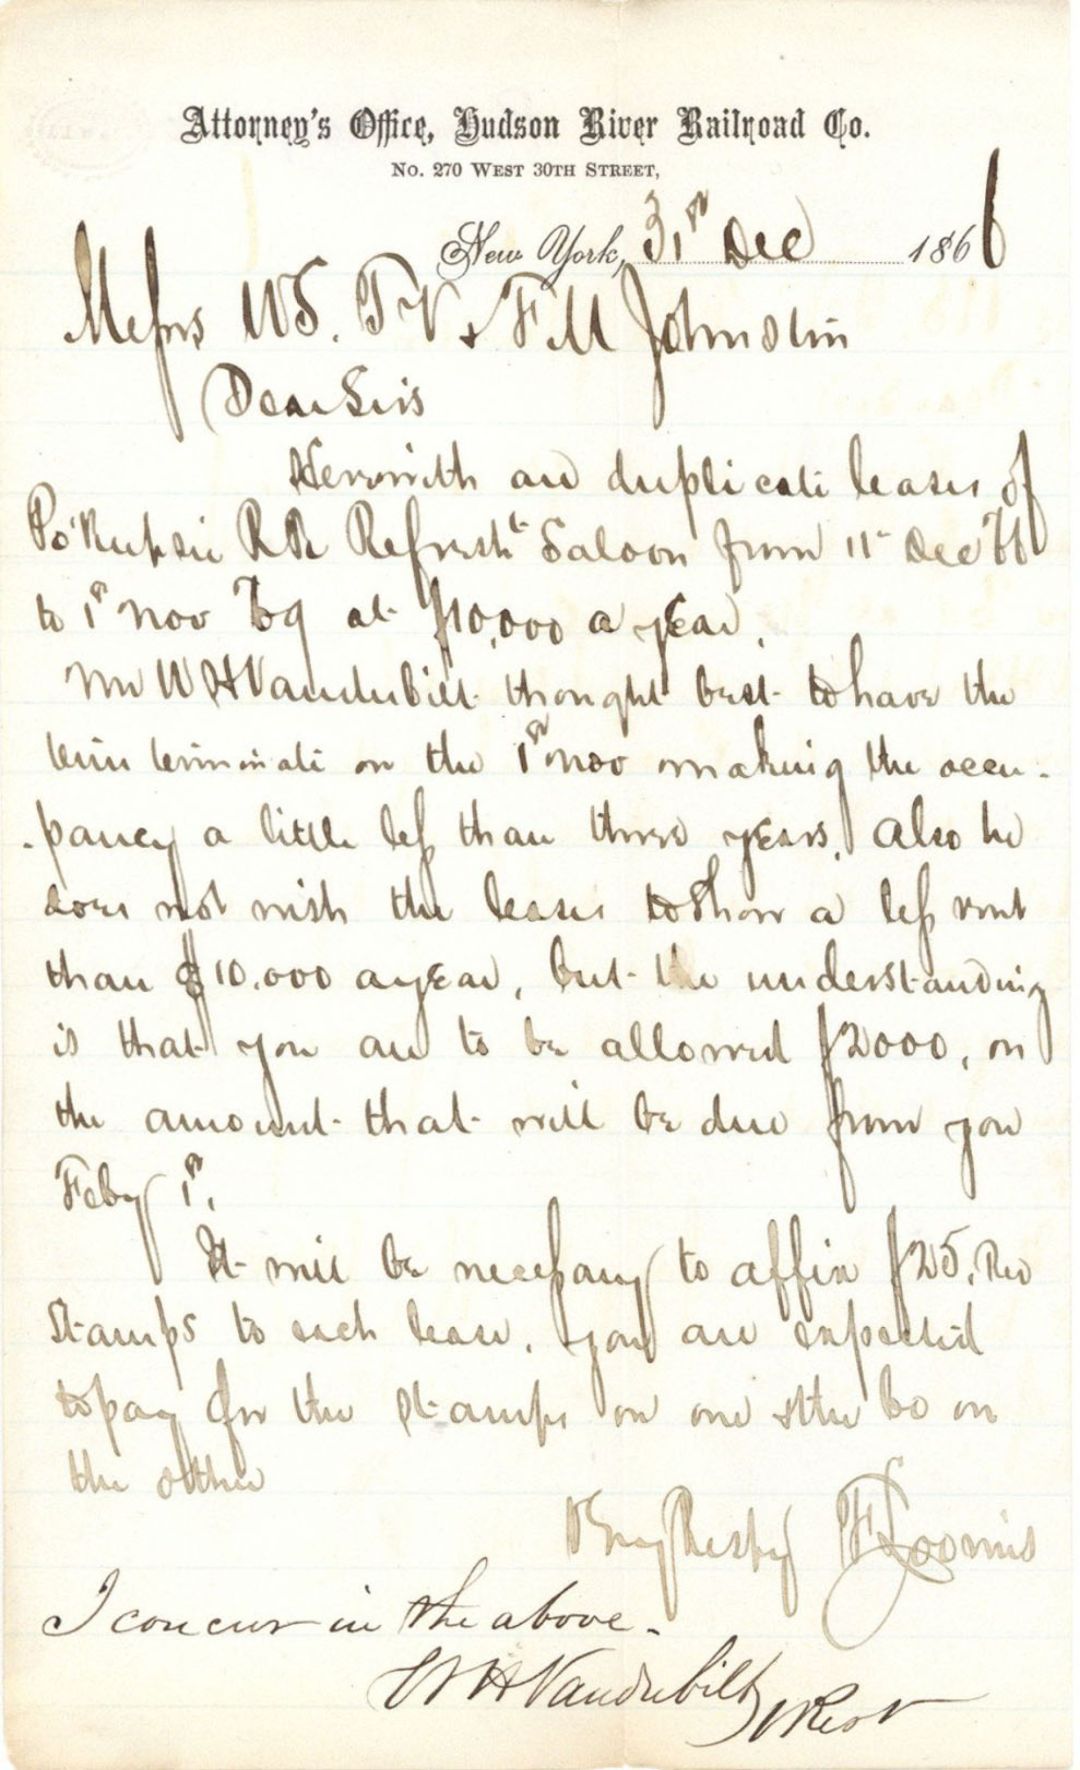 Attorney's Office, Hudson River Railroad Co.
No. 270 West 30th Street,
New York, 31st Dec 1866
Messrs WS. TV & FM Johnston
Dear Sirs
Herewith are duplicate leases of
Po'Keepsie RR Refresht Saloon from 11t Dec 66
to 1st Nov '69 at $10,000 a year.
Mr W H Vanderbilt thought best to have the
term terminate on the 1st Nov making the occu-
-pancy a little less than three years. Also he
does not wish the leases to show a less rent
than $10.000 a year, but the understanding
is that you are to be allowed $2000, on
the amount that will be due from you
Feby 1st.
It will be necessary to affix $25. Rev
Stamps to each lease. You are expected
to pay for the stamps on one & the Co on
the other
Very Respy F Loomis
I concur in the above.
W H Vanderbilt VPrest